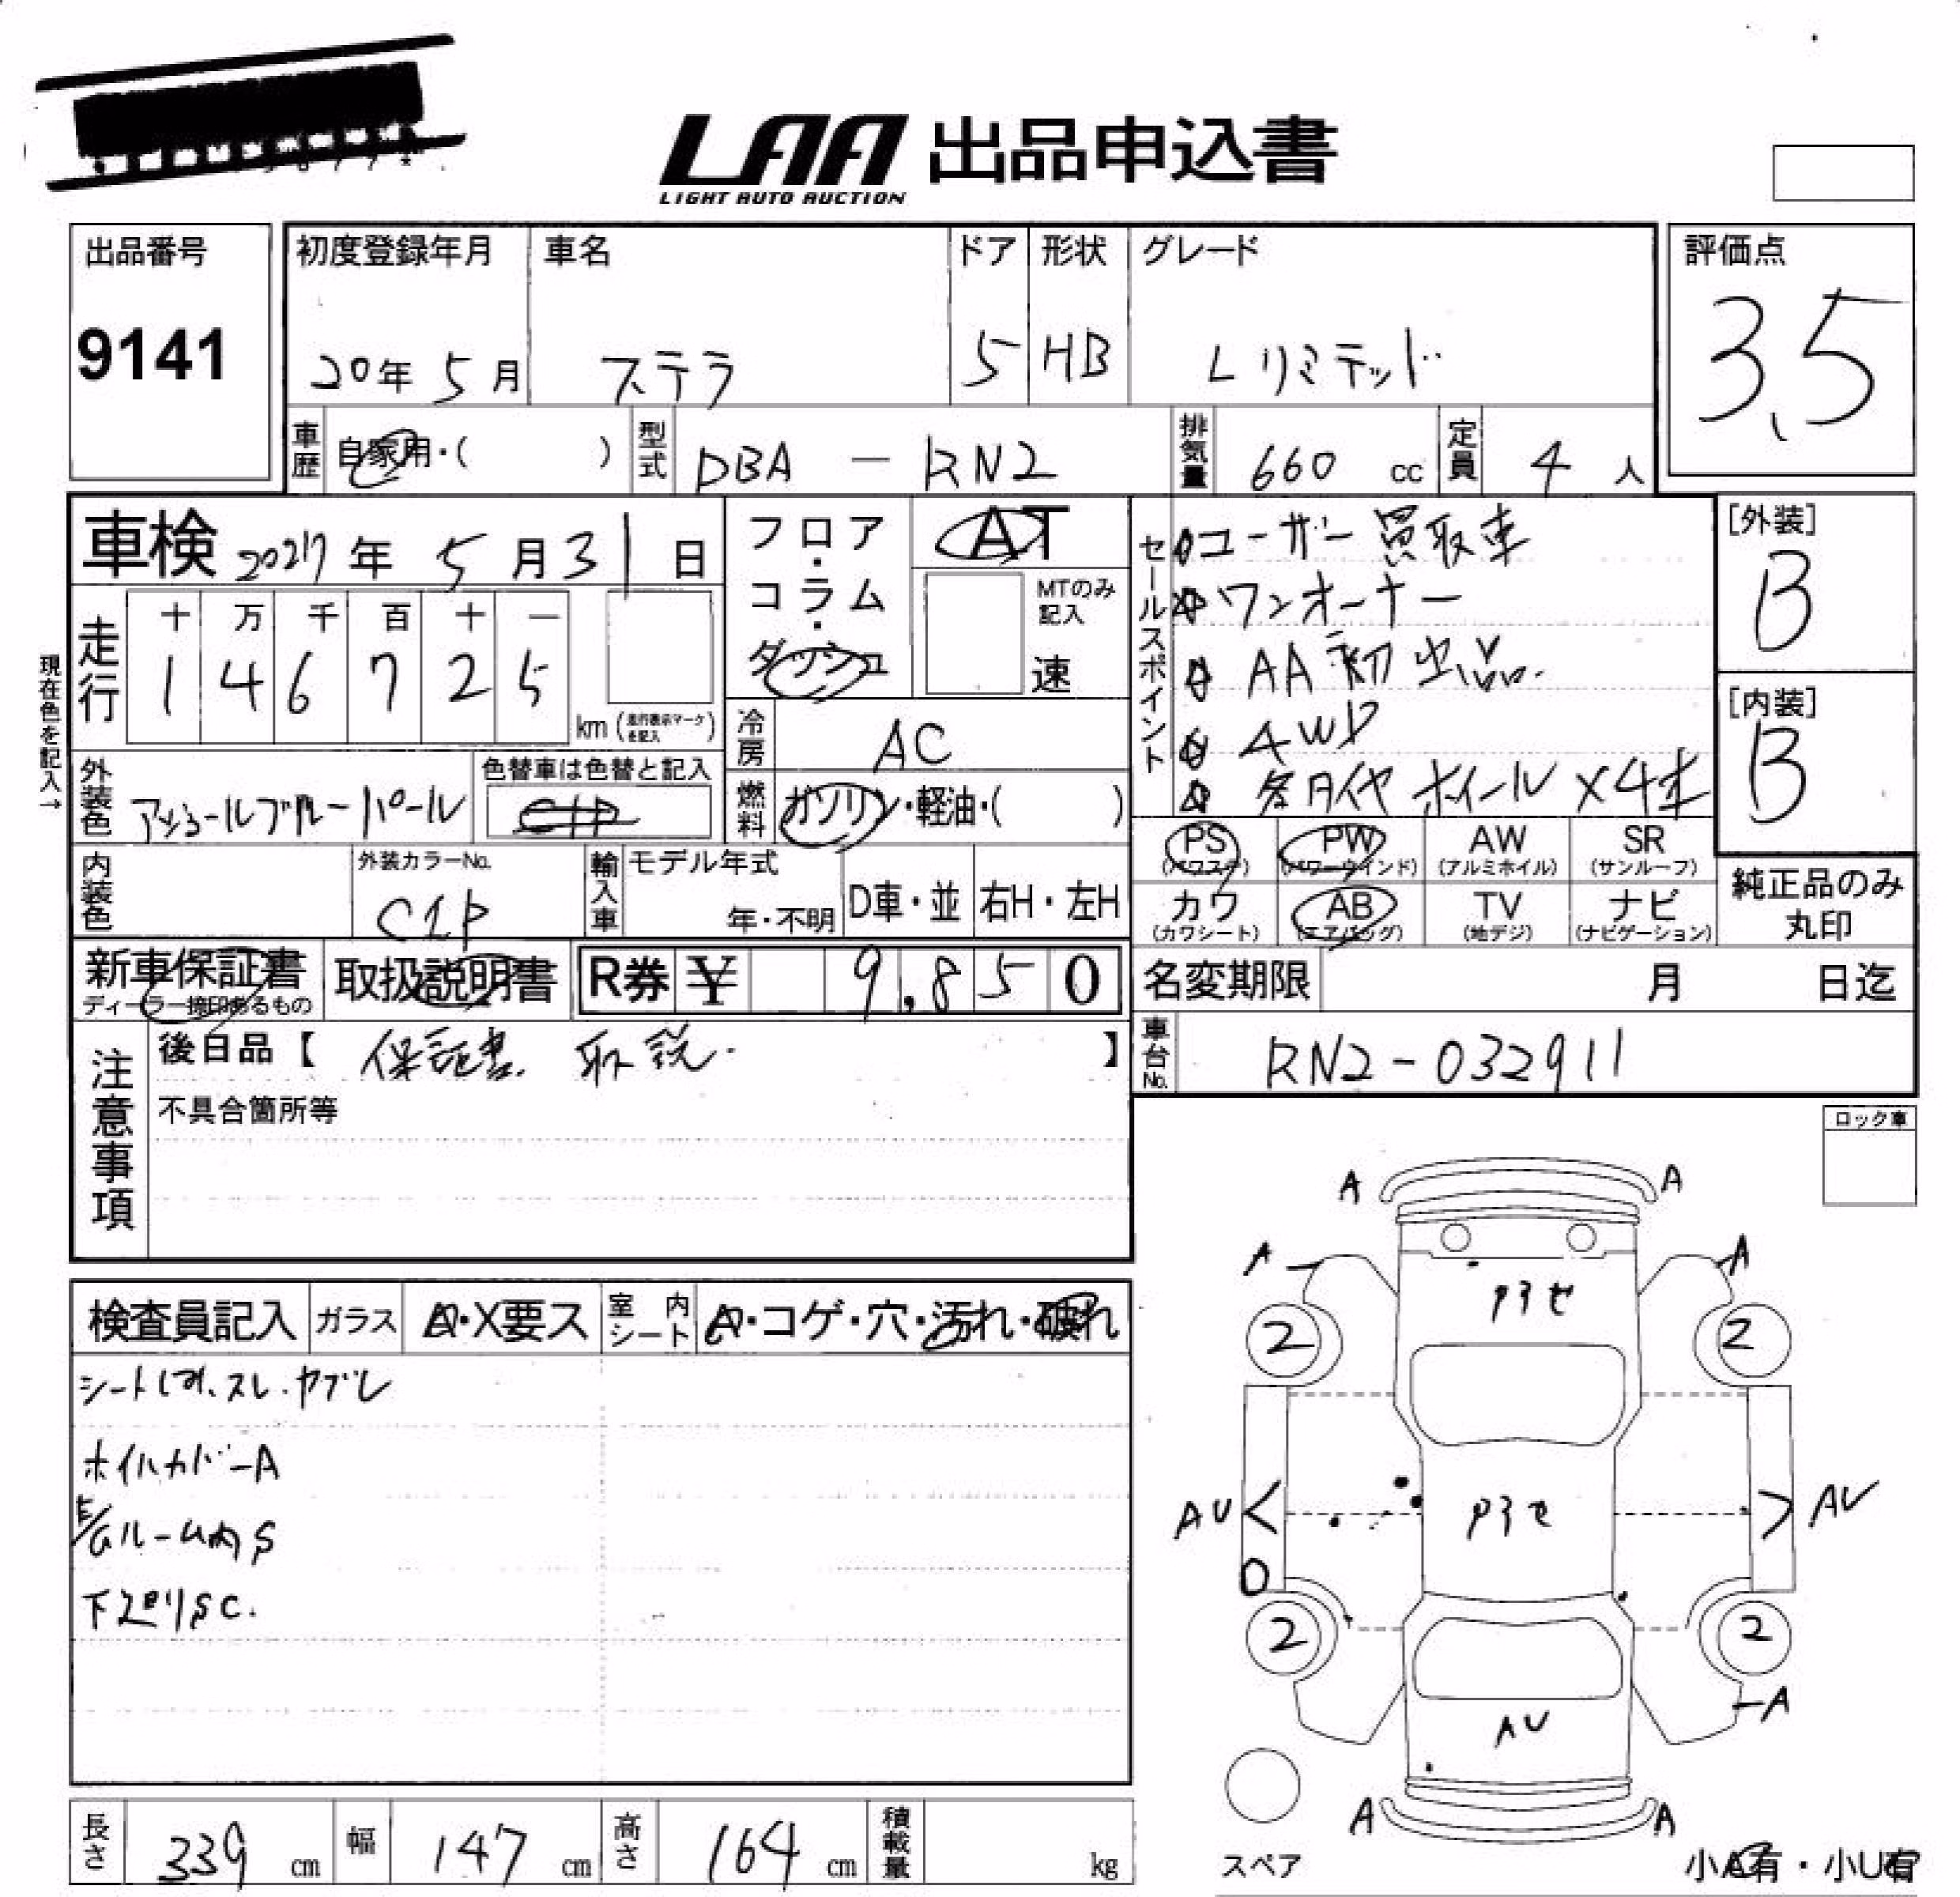 LAA 出品申込書
LIGHT AUTO AUCTION
出品番号
9141
初度登録年月
20年 5月
車名
ステラ
ドア
5
形状
HB
グレード
Lリミテッド
評価点
3.5
車歴 自家用・( )
型式 DBA - RN2
排気量 660 cc
定員 4 人
車検 2027年 5月31日
現在色を記入→
走行
十 万 千 百 十 一
1 4 6 7 2 5
km (走行表示マークを記入)
フロア・コラム・ダッシュ
AT
MTのみ記入
速
セールスポイント
ユーザー買取車
ワンオーナー
AA初出品.
4WD
冬タイヤ ホイール ×4本
[外装]
B
[内装]
B
冷房 AC
燃料 ガソリン・軽油・( )
外装色 アジュールブルーパール
色替車は色替と記入
内装色
外装カラーNo.
C1P
輸入車 モデル年式
年・不明 D車・並 右H・左H
PS (パワステ)
PW (パワーウインド)
AW (アルミホイル)
SR (サンルーフ)
カワ (カワシート)
AB (エアバッグ)
TV (地デジ)
ナビ (ナビゲーション)
純正品のみ丸印
新車保証書
ディーラー捺印あるもの
取扱説明書
R券 ¥ 9,850
名変期限 月 日迄
車台No. RN2-032911
注意事項
後日品【 保証書. 取説. 】
不具合箇所等
ロック車
検査員記入
ガラス A・X要ス
室内シート A・コゲ・穴・汚れ・破れ
シートしみ、スレ、ヤブレ
ホイルカバーA
E/Gルーム内S
下廻りSC.
A A
A A
2 2
AU AU
2 2
AU
A
A A
スペア
小A有・小U有
長さ 339 cm
幅 147 cm
高さ 164 cm
積載量 kg